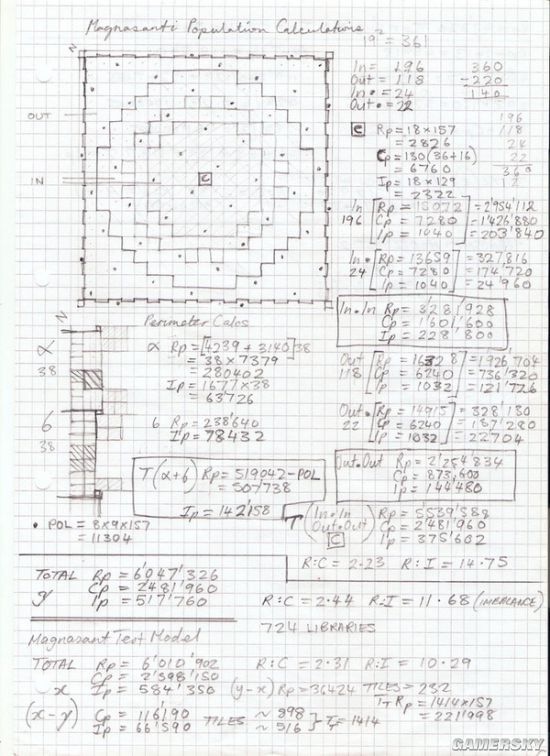 Magnasanti Population Calculations
19² = 361
In = 196
Out = 118
In• = 24
Out• = 22
360
-220
140
196
118
24
22
360
12
N
OUT
IN
C
C Rp = 18×157
= 2826
Cp = 130(36+16)
= 6760
Ip = 18×129
= 2322
In 196 [Rp = 15072] = 2'954'112
[Cp = 7280] = 1'426'880
[Ip = 1040] = 203'840
In• 24 [Rp = 13659] = 327'816
[Cp = 7280] = 174'720
[Ip = 1040] = 24'960
In•In Rp = 3'281'928
Cp = 1'601'600
Ip = 228'800
Out 118 [Rp = 16328] = 1'926'704
[Cp = 6240] = 736'320
[Ip = 1032] = 121'776
Out• 22 [Rp = 14915] = 328'130
[Cp = 6240] = 137'280
[Ip = 1032] = 22704
Out•Out Rp = 2'254'834
Cp = 873,600
Ip = 144'480
N
α
38
6
38
Perimeter Calcs
α Rp = [4239 + 3140]38
= 38×7379
= 280402
Ip = 1677×38
= 63726
6 Rp = 238'640
Ip = 78432
T(α+6) Rp = 519042-POL
= 507'738
Ip = 142'158
• POL = 8×9×157
= 11304
T(In•In Out•Out C) Rp = 5539'588
Cp = 2'481'960
Ip = 375'602
R:C = 2.23 R:I = 14.75
TOTAL Rp = 6'047'326
y Cp = 2481'960
Ip = 517'760
R:C = 2.44 R:I = 11.68 (IMBALANCE)
724 LIBRARIES
Magnasanti Test Model
TOTAL Rp = 6'010'902
Cp = 2'598'150
x Ip = 584'350
R:C = 2.31 R:I = 10.29
(y-x) Rp = 36424 TILES = 232
(x-y) Cp = 116'190
Ip = 66'590
TILES ~ 898
~ 516
T = 1414
T Rp = 1414×157
= 221'998
GAMERSKY